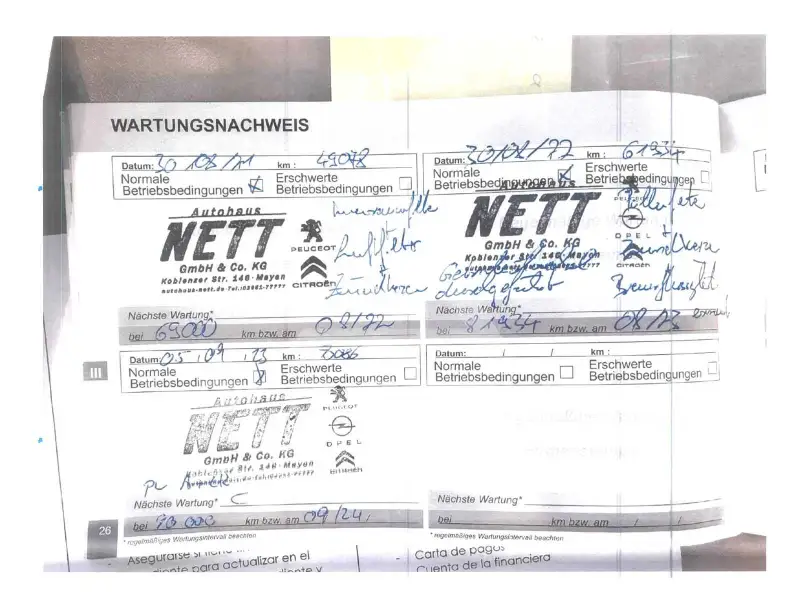 WARTUNGSNACHWEIS
Datum: 30/08/21 km: 49078
Normale Betriebsbedingungen
Erschwerte Betriebsbedingungen
Autohaus
NETT
GmbH & Co. KG
Koblenzer Str. 146 · Mayen
PEUGEOT
CITROËN
Innenraumfilter
Luftfilter
Zündkerzen
Nächste Wartung*
bei 69000 km bzw. am 08/22
Datum: 30/08/22 km: 61934
Normale Betriebsbedingungen
Erschwerte Betriebsbedingungen
Autohaus
NETT
GmbH & Co. KG
Koblenzer Str. 146 · Mayen
PEUGEOT
OPEL
CITROËN
Pollenfilter
Zündkerzen
durchgeführt
Bremsflüssigkeit
Nächste Wartung*
bei 81934 km bzw. am 08/23
III
Datum: 05/09/23 km:
Normale Betriebsbedingungen
Erschwerte Betriebsbedingungen
Autohaus
NETT
GmbH & Co. KG
Koblenzer Str. 146 · Mayen
PEUGEOT
OPEL
CITROËN
Nächste Wartung*
bei 90000 km bzw. am 09/24/
* regelmäßiges Wartungsintervall beachten
Datum: / / km:
Normale Betriebsbedingungen
Erschwerte Betriebsbedingungen
Nächste Wartung*
bei km bzw. am / /
* regelmäßiges Wartungsintervall beachten
26
Asegurarse si
para actualizar en el
Carta de pagos
Cuenta de la financiera